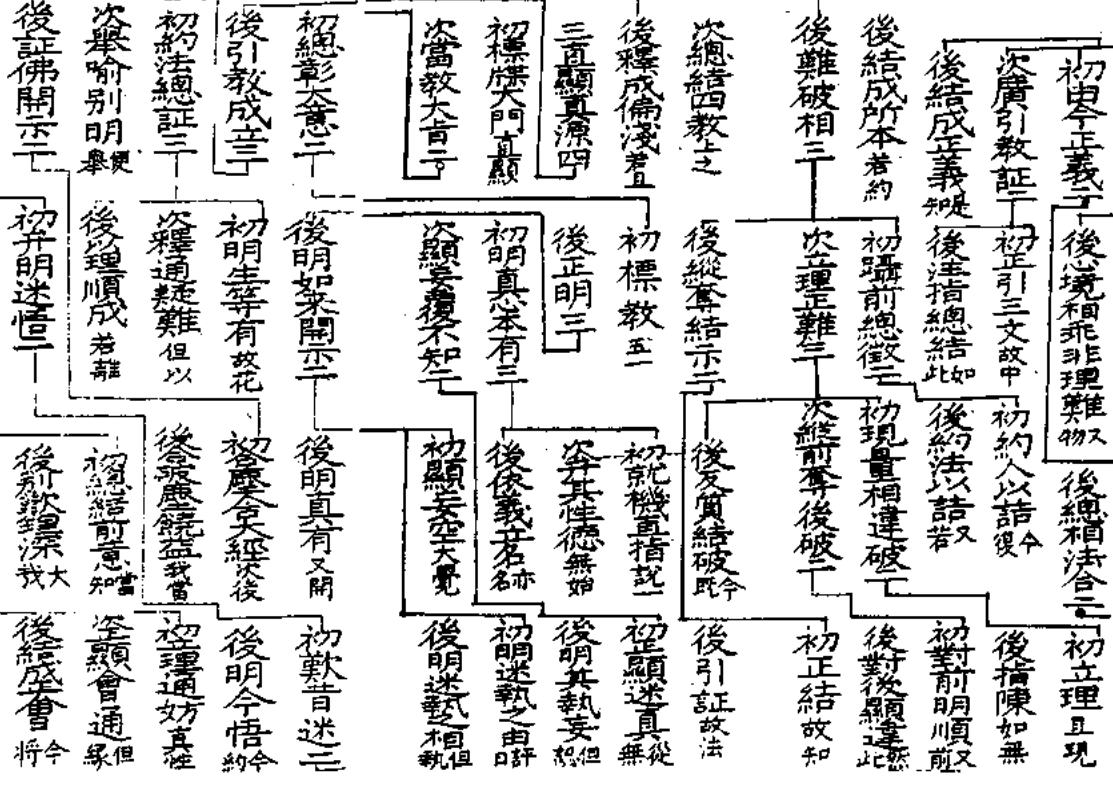 初申今正義二
次廣引教証二
後結成正義是知
後結成所本若約
後難破相三
次總結四教上之
後釋成偏淺若且
三直顯真源四
初標牒大門直顯
次當教大旨二
初總彰大意二
後引教成立三
初約法總証三
次舉喻別明便舉
後証佛開示二
後心境相乖非理難又物
初正引三文故中
後注指總結如此
初躡前總徵二
次立理正難三
後縱奪結示二
初標教五一
後正明三
初明真心本有三
次顯妄覆不知二
後明如来開示二
初明生等有故花
次釋通疑難但以
後以理順成若離
初弁明迷悟二
後總相法合二
初約人以詰今復
後約法以詰又若
初現量相違破二
次縱前奪後破二
後反質結破今既
初就機直指說一
次弁其性德無始
後依義立名亦名
初顯妄空大覺
後明真有又開
初塵含大經次後
後破塵饒益我當
初總結前意當知
後別歎深法大我
初立理且現
後指陳如無
初對前明順又前
後對後顯違然此
初正結故知
後引証故法
初正顯迷真從無
後明其執妄但
初明迷執之由評曰
後明迷執之相但執
初歎昔迷二
後明今悟今約
初立理通妨真性
次顯會通但緣
後結成會今将